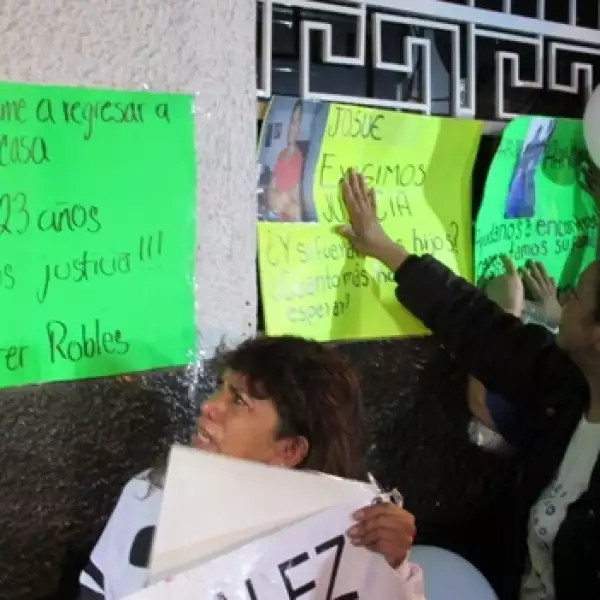 me a regresar a
casa
23 años
s justicia!!!
er Robles
JOSUE
EXIGIMOS
JUSTICIA
¿Y si fueran hijos?
¿Cuánto más
esperar?
a encon
su
LEZ